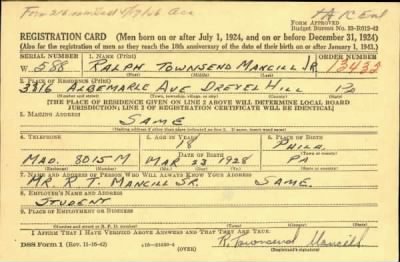 Form 216 mailed
TAKEN
Form Approved
Budget Bureau No. 33-R019-42
REGISTRATION CARD (Men born on or after July 1, 1924, and on or before December 31, 1924)
(Also for the registration of men as they reach the 18th anniversary of the date of their birth on or after January 1, 1943.)
SERIAL NUMBER 1. NAME (Print) ORDER NUMBER
S88 RALPH TOWNSEND MANCILL JR 13433
2. PLACE OF RESIDENCE (Print)
3816 ALBEMARLE AVE DREXEL HILL PA
(Number and street) (Town, township, village, or city) (County) (State)
[THE PLACE OF RESIDENCE GIVEN ON LINE 2 ABOVE WILL DETERMINE LOCAL BOARD
JURISDICTION; LINE 2 OF REGISTRATION CERTIFICATE WILL BE IDENTICAL]
3. MAILING ADDRESS
SAME
4. TELEPHONE 5. AGE IN YEARS 6. PLACE OF BIRTH
18 PHILA.
DATE OF BIRTH (Town or county)
MAD. 8015 M MAR 23 1928 PA
(Exchange) (Number) (Mo.) (Day) (Yr.) (State or country)
7. NAME AND ADDRESS OF PERSON WHO WILL ALWAYS KNOW YOUR ADDRESS
MR. R. T. MANCILL SR. SAME.
8. EMPLOYER'S NAME AND ADDRESS
STUDENT
9. PLACE OF EMPLOYMENT OR BUSINESS
(Number and street or R. F. D. number) (Town) (County) (State)
I AFFIRM THAT I HAVE VERIFIED ABOVE ANSWERS AND THAT THEY ARE TRUE.
DSS Form 1 (Rev. 11-16-42) (OVER) R. Townsend Mancill